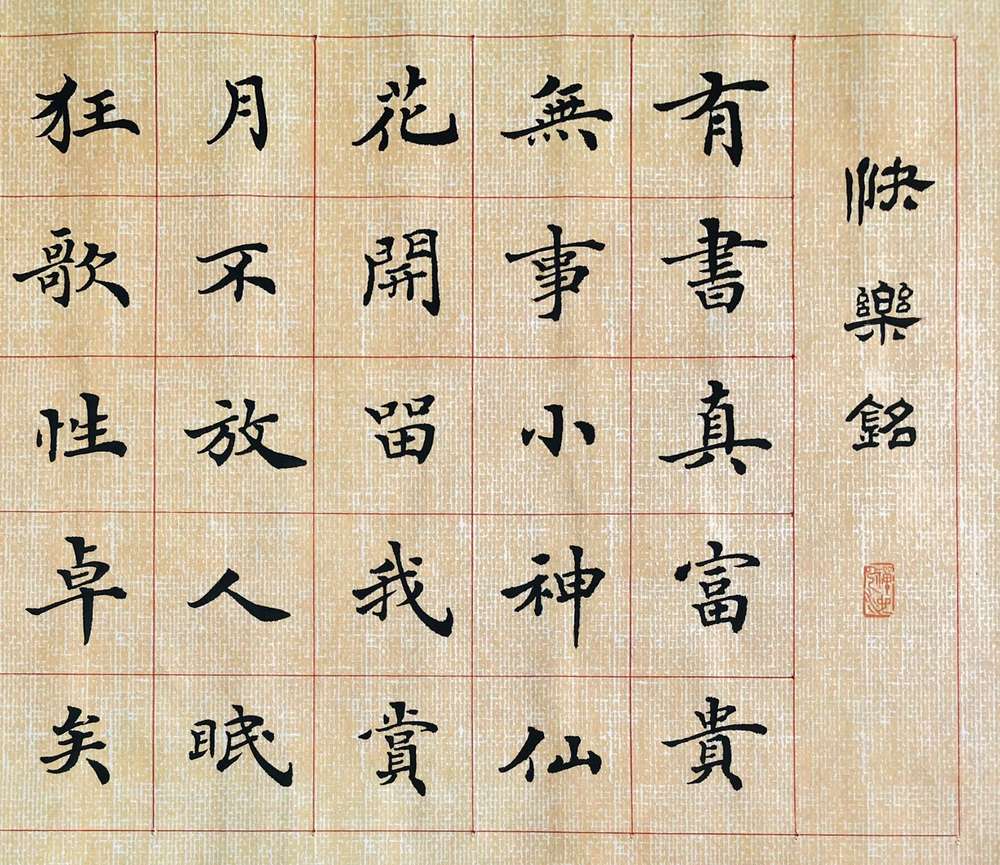 快樂銘
有書真富貴
無事小神仙
花開留我賞
月不放人眠
狂歌性卓矣